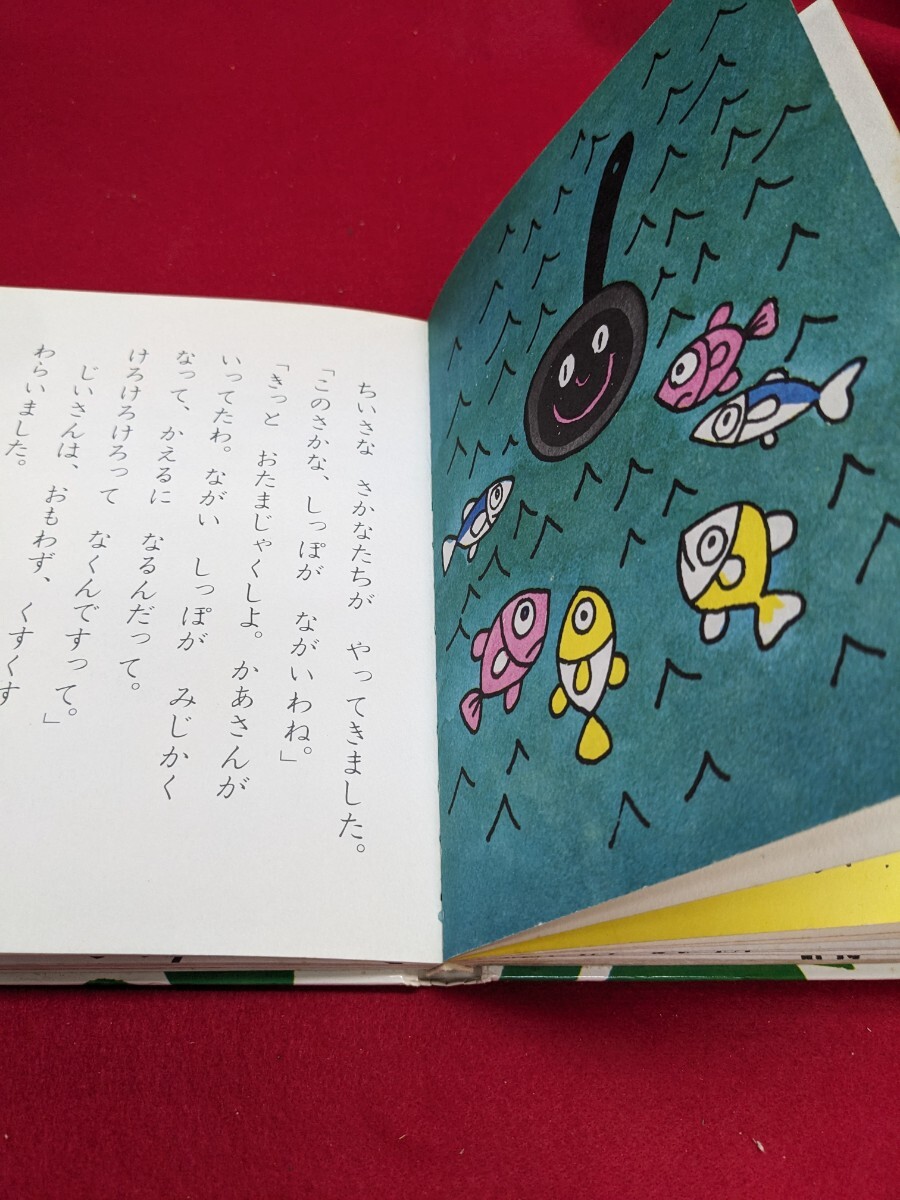 ちいさな　さかなたちが　やってきました。
「このさかな、しっぽが　ながいわね。」
「きっと　おたまじゃくしよ。かあさんが
いってたわ。ながい　しっぽが　みじかく
なって、かえるに　なるんだって。
けろけろけろって　なくんですって。」
じいさんは、おもわず、くすくす
わらいました。